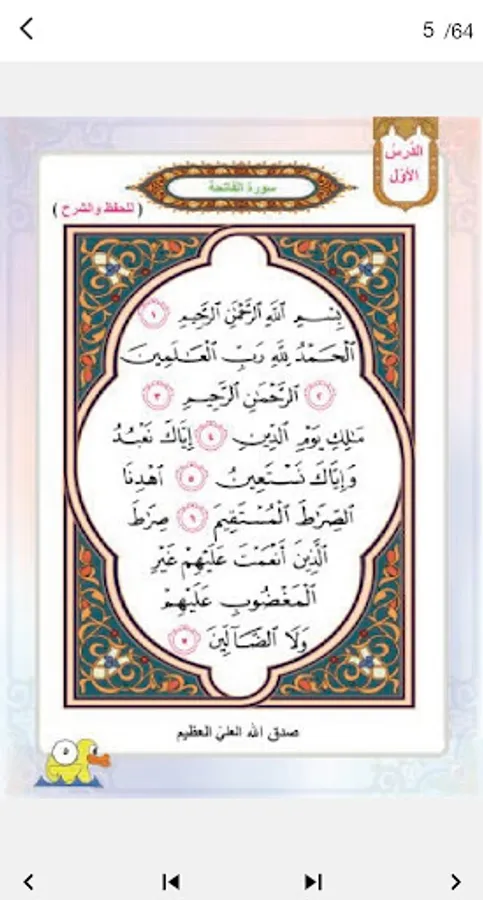 5 /64
الدَّرسُ
الأوّل
سورة الفاتحة
( للحفظ والشرح )
بِسْمِ اللَّهِ الرَّحْمَٰنِ الرَّحِيمِ ١
الْحَمْدُ لِلَّهِ رَبِّ الْعَالَمِينَ
٢ الرَّحْمَٰنِ الرَّحِيمِ ٣
مَٰلِكِ يَوْمِ الدِّينِ ٤ إِيَّاكَ نَعْبُدُ
وَإِيَّاكَ نَسْتَعِينُ ٥ اهْدِنَا
الصِّرَٰطَ الْمُسْتَقِيمَ ٦ صِرَٰطَ
الَّذِينَ أَنْعَمْتَ عَلَيْهِمْ غَيْرِ
الْمَغْضُوبِ عَلَيْهِمْ
وَلَا الضَّآلِّينَ ٧
صدق الله العليّ العظيم
٥